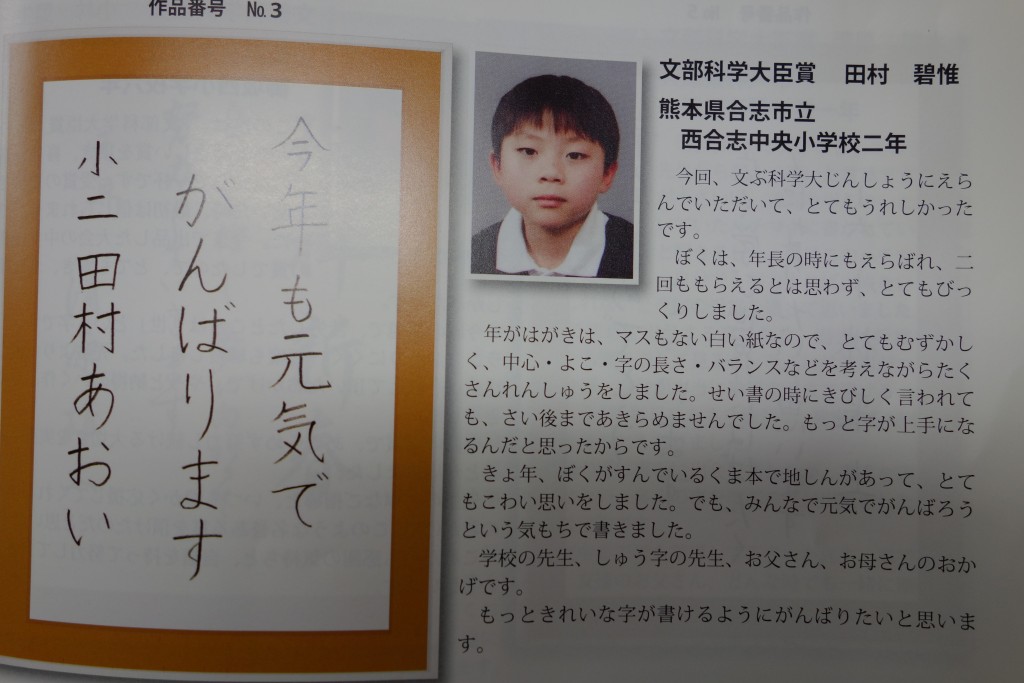 作品番号　№3
今年も元気で
がんばります
小二田村あおい
文部科学大臣賞　田村　碧惟
熊本県合志市立
西合志中央小学校二年
今回、文ぶ科学大じんしょうにえら
んでいただいて、とてもうれしかった
です。
ぼくは、年長の時にもえらばれ、二
回ももらえるとは思わず、とてもびっ
くりしました。
年がはがきは、マスもない白い紙なので、とてもむずかし
く、中心・よこ・字の長さ・バランスなどを考えながらたく
さんれんしゅうをしました。せい書の時にきびしく言われて
も、さい後まであきらめませんでした。もっと字が上手にな
るんだと思ったからです。
きょ年、ぼくがすんでいるくま本で地しんがあって、とて
もこわい思いをしました。でも、みんなで元気でがんばろう
という気もちで書きました。
学校の先生、しゅう字の先生、お父さん、お母さんのおか
げです。
もっときれいな字が書けるようにがんばりたいと思いま
す。